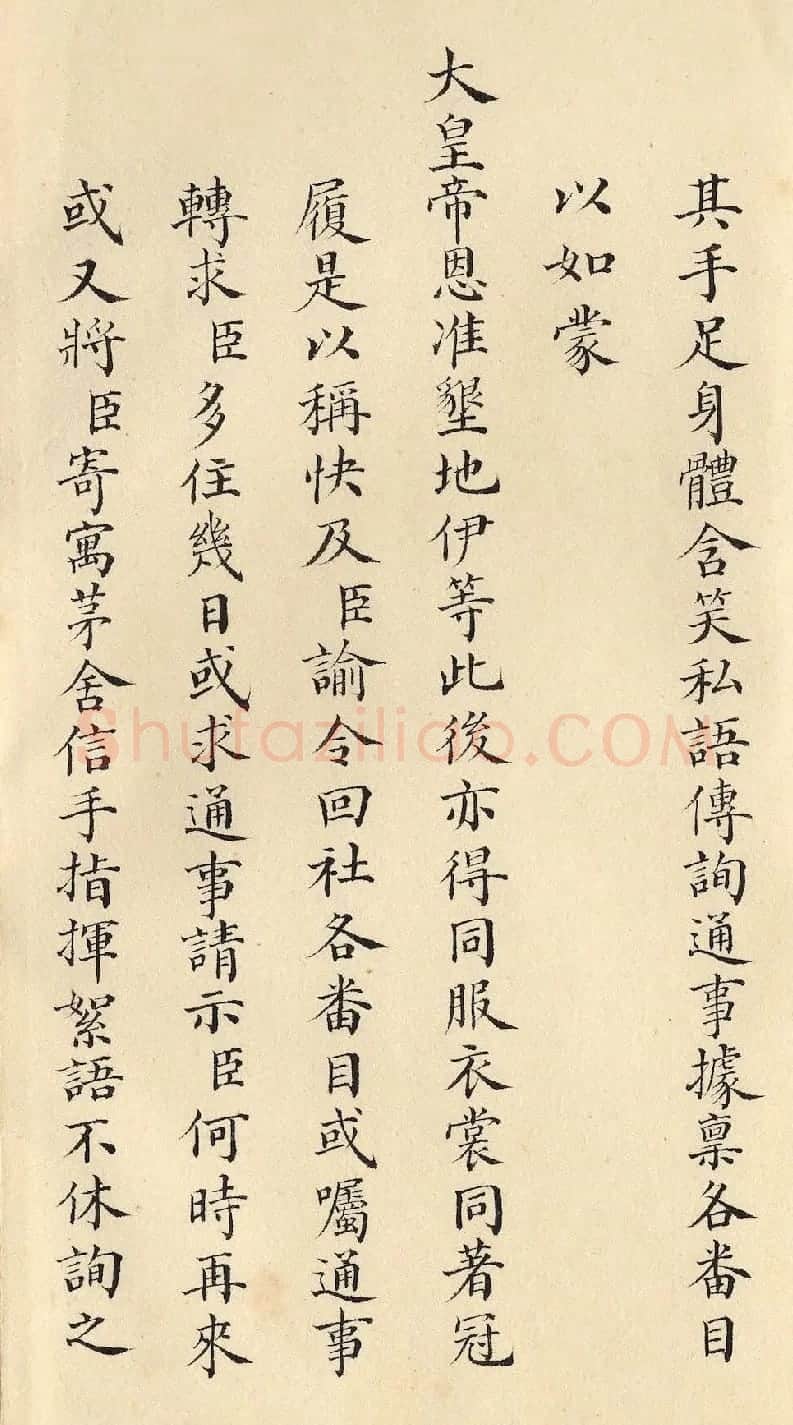 其手足身體含笑私語傳詢通事據稟各番目
以如蒙
大皇帝恩准墾地伊等此後亦得同服衣裳同著冠
履是以稱快及臣諭令回社各番目或囑通事
轉求臣多住幾日或求通事請示臣何時再來
或又將臣寄寓茅舍信手指揮絮語不休詢之
Shufaziliao.COM